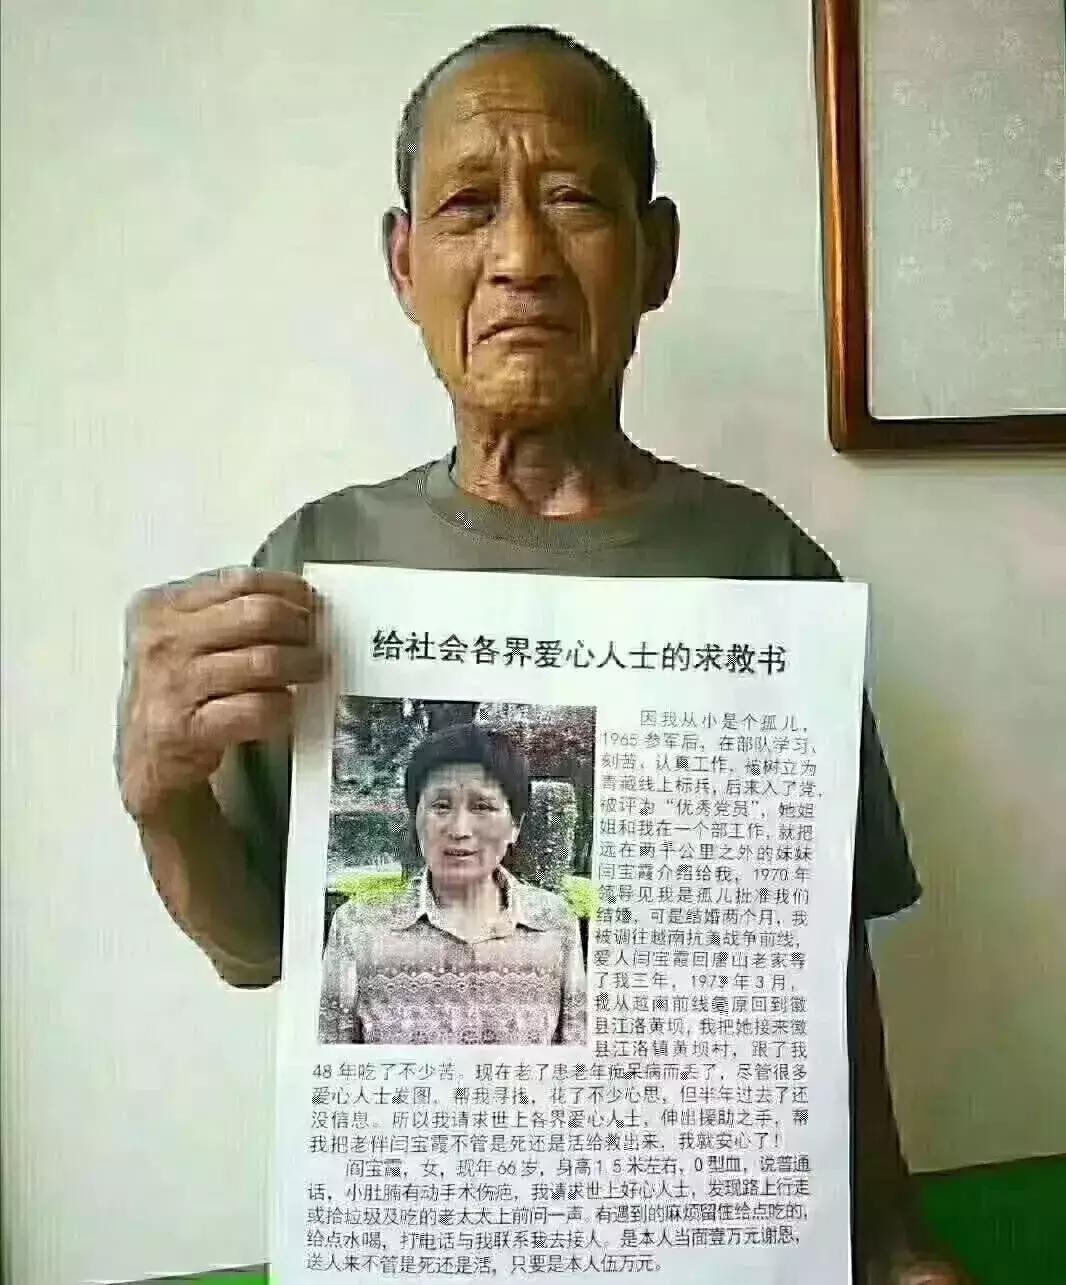 给社会各界爱心人士的求救书
因我从小是个孤儿，
1965参军后，在部队学习、
刻苦、认真工作，被树立为
青藏线上标兵，后来入了党，
被评为“优秀党员”，她姐
姐和我在一个部工作，就把
远在两千公里之外的妹妹
闫宝霞介绍给我，1970年
领导见我是孤儿批准我们
结婚，可是结婚两个月，我
被调往越南抗美战争前线，
爱人闫宝霞回唐山老家等
了我三年，1973年3月，
我从越南前线复原回到徽
县江洛黄坝，我把她接来徽
县江洛镇黄坝村，跟了我
48年吃了不少苦。现在老了患老年痴呆病而丢了，尽管很多
爱心人士发图，帮我寻找，花了不少心思，但半年过去了还
没信息。所以我请求世上各界爱心人士，伸出援助之手，帮
我把老伴闫宝霞不管是死还是活给救出来，我就安心了！
阎宝霞，女，现年66岁，身高1.5米左右，O型血，说普通
话，小肚腩有动手术伤疤，我请求世上好心人士，发现路上行走
或拾垃圾及吃的老太太上前问一声，有遇到的麻烦留住给点吃的，
给点水喝，打电话与我联系我去接人。是本人当面壹万元谢恩，
送人来不管是死还是活，只要是本人伍万元。